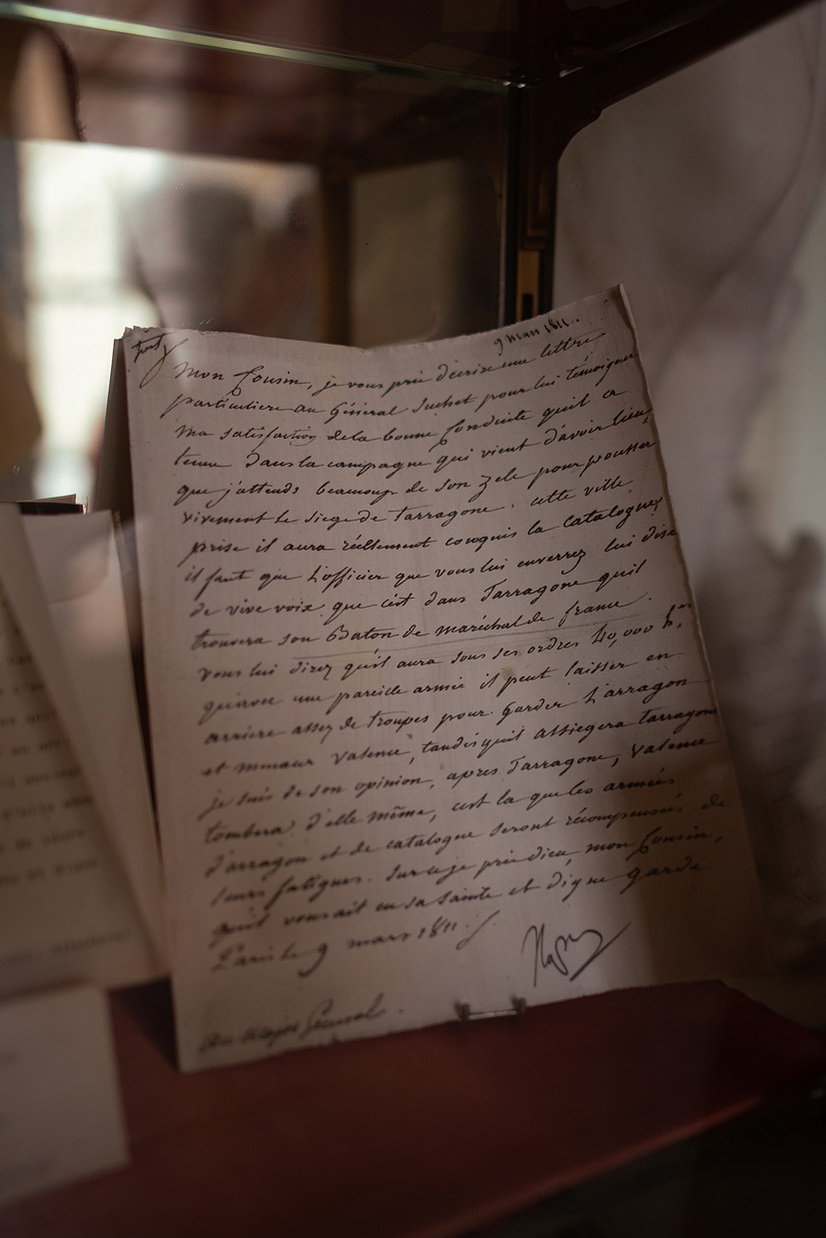 9 mars 1811.
Mon Cousin, je vous prie d'écrire une lettre
particuliere au Général Suchet pour lui témoigner
ma satisfaction de la bonne Conduite qu'il a
tenue dans la campagne qui vient d'avoir lieu,
que j'attends beaucoup de son zele pour pousser
vivement le siege de Tarragone. cette ville
prise il aura réellement conquis la catalogne,
il faut que L'officier que vous lui enverrez lui dise
de vive voix que c'est dans Tarragone qu'il
trouvera son Baton de maréchal de france.
vous lui direz qu'il aura sous ses ordres 40,000 h.es
qu'avec une pareille armée il peut laisser en
arriere assez de troupes pour garder L'arragon
et menacer Valence, tandis qu'il assiegera tarragone
je suis de son opinion, apres Tarragone, Valence
tombera d'elle même, c'est la que les armées
d'arragon et de catalogne seront récompensés de
leurs fatigues. Sur ce je prie dieu, mon Cousin,
qu'il vous ait en sa sainte et digne garde
Paris le 9 mars 1811
Nap
Au Major Général